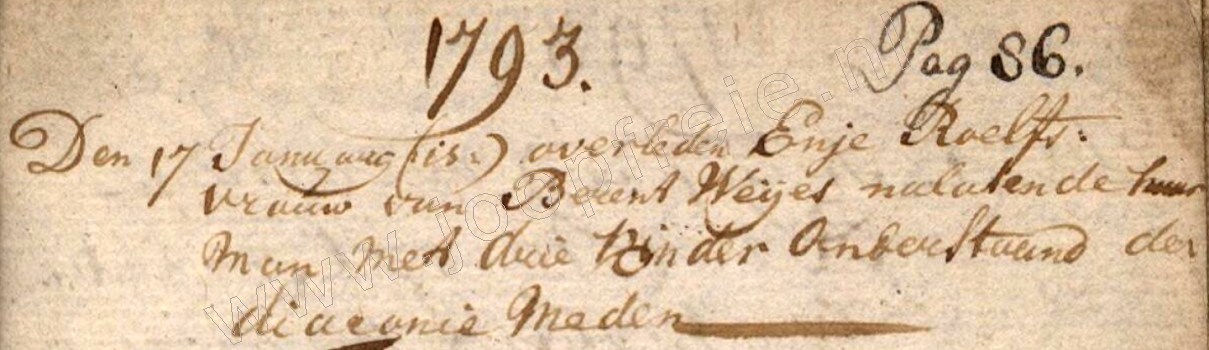 1793. Pag 86.
Den 17 Januarij (is:) overleden Enje Roelfs:
vrouw van Berent Weijes nalatende haar
man met drie kinder onder Staand der
diaconie Meden
www.joopfreije.nl